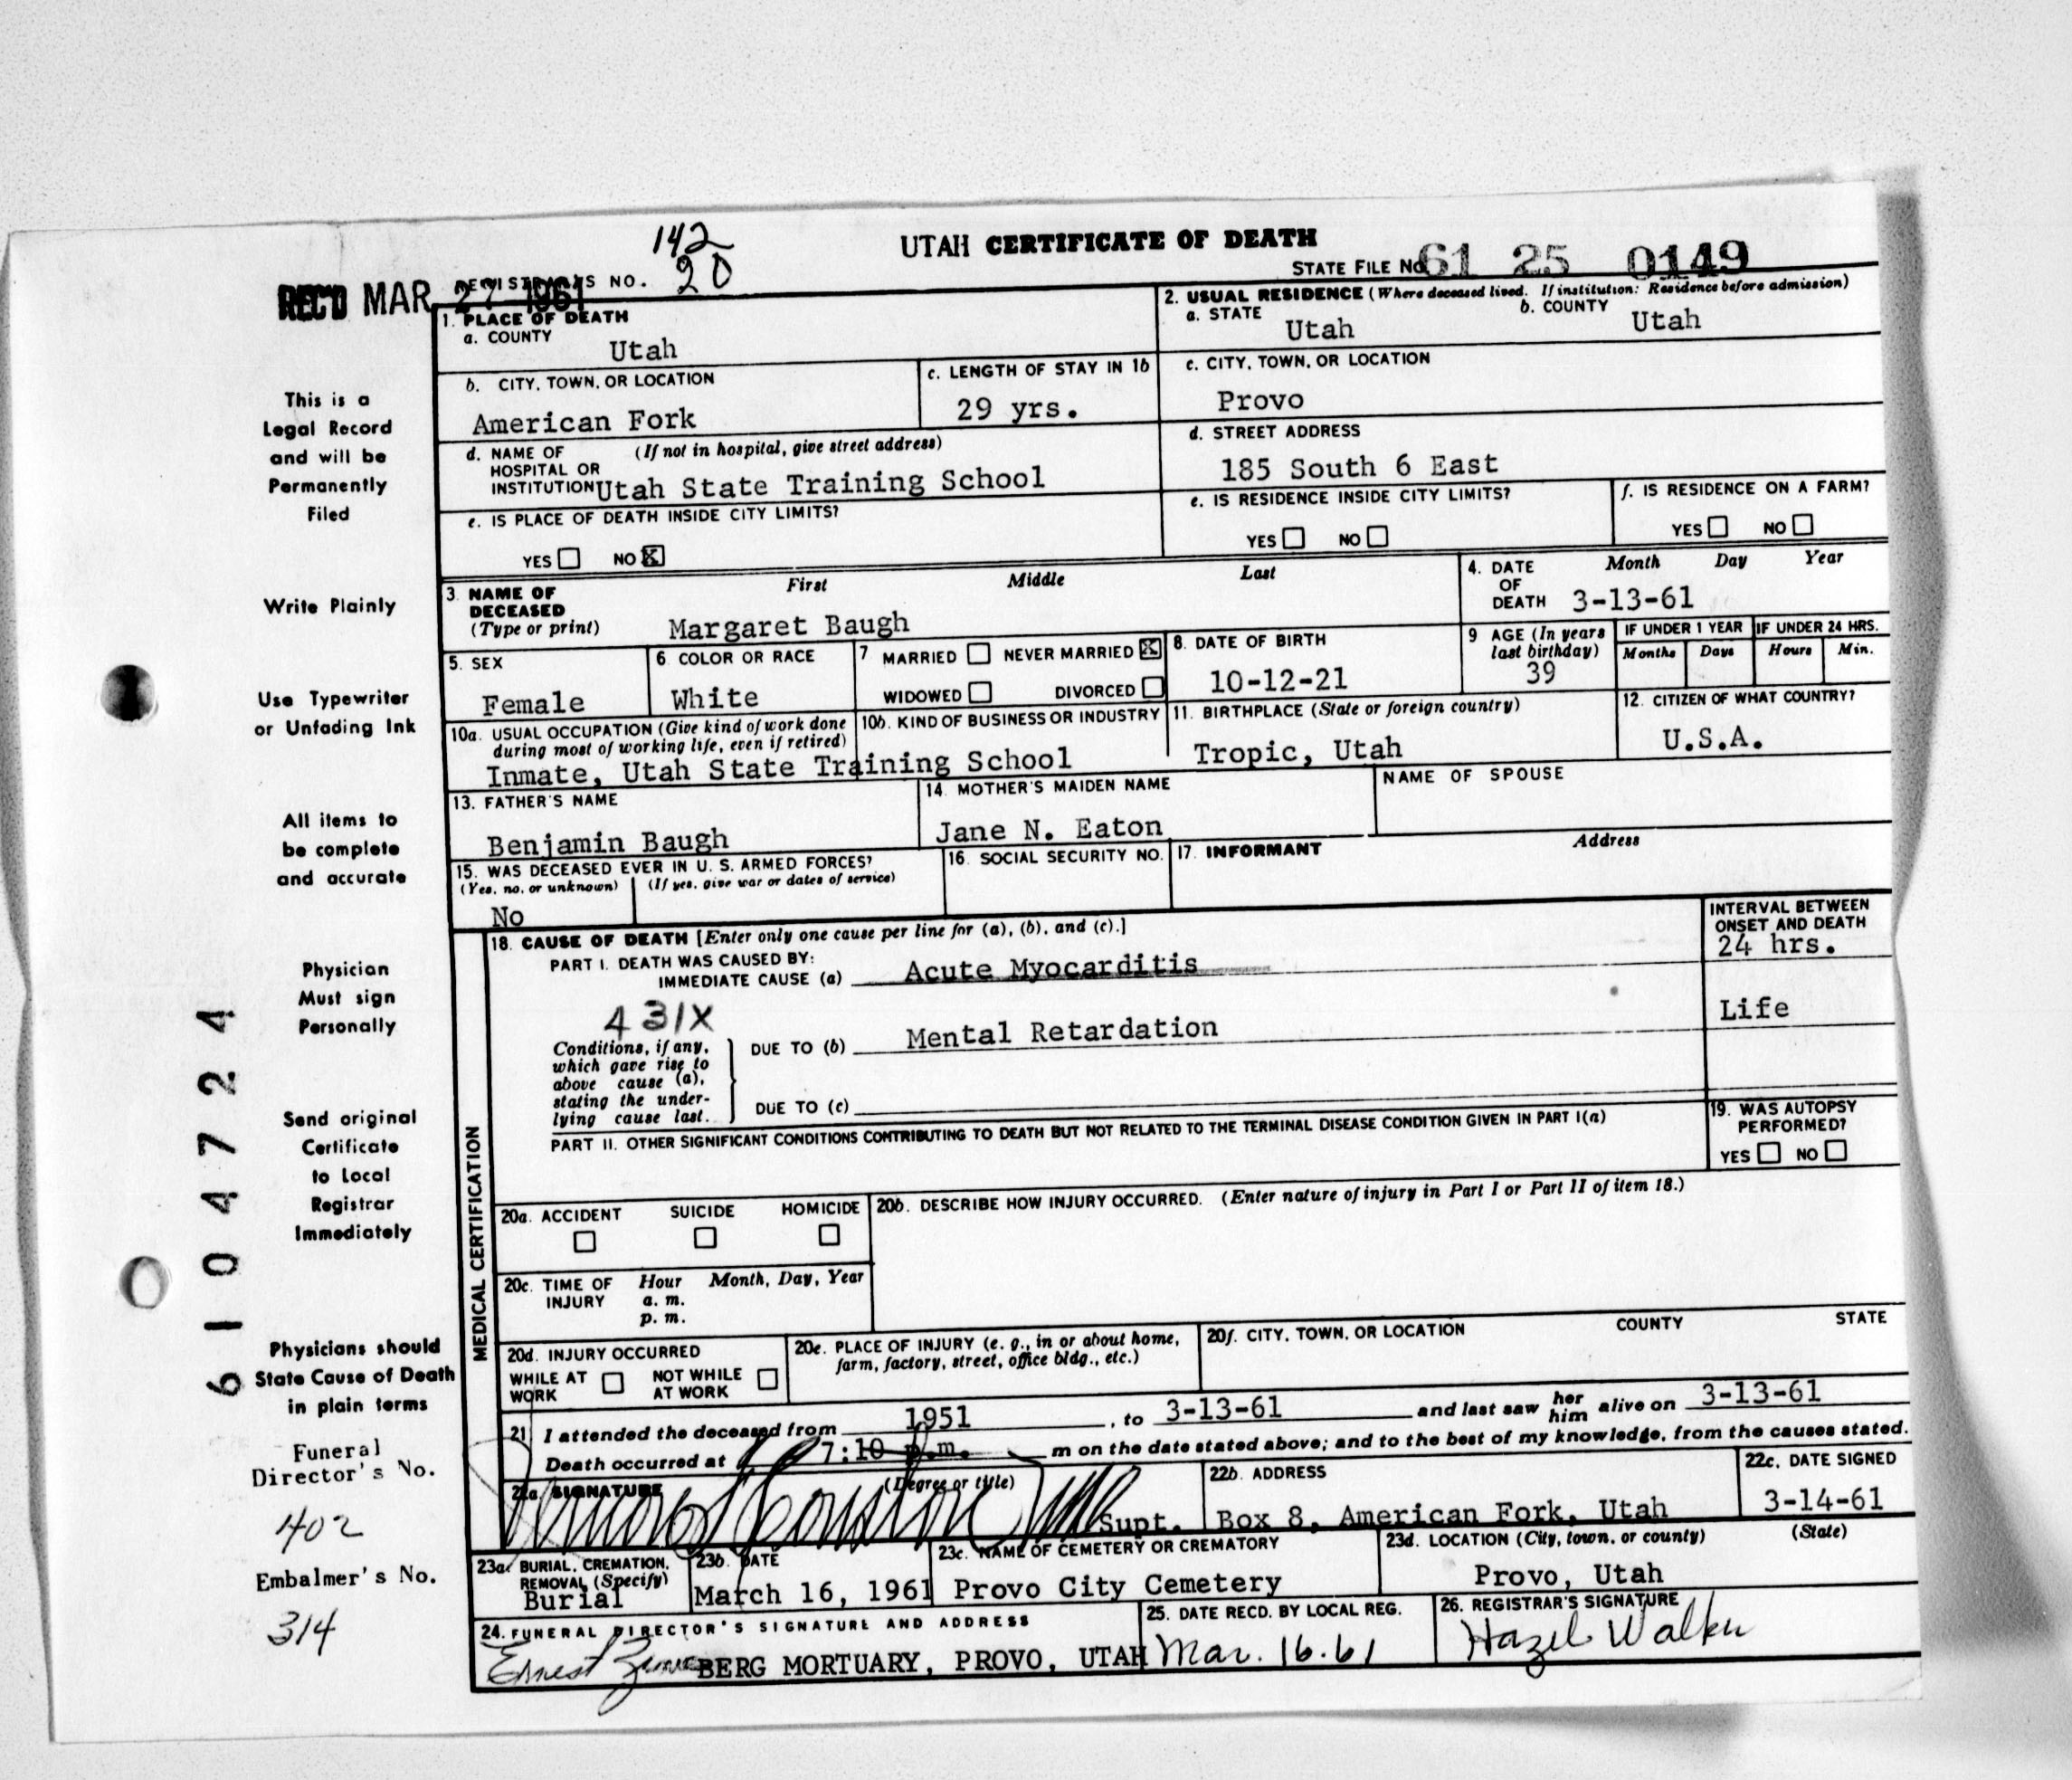 142
UTAH CERTIFICATE OF DEATH
REGISTRAR'S NO. 20
STATE FILE NO. 61 25 0149
REC'D MAR 27 1961
1. PLACE OF DEATH
a. COUNTY
Utah
2. USUAL RESIDENCE (Where deceased lived. If institution: Residence before admission)
a. STATE
Utah
b. COUNTY
Utah
b. CITY, TOWN, OR LOCATION
American Fork
c. LENGTH OF STAY IN 1b
29 yrs.
c. CITY, TOWN, OR LOCATION
Provo
d. NAME OF HOSPITAL OR INSTITUTION
(If not in hospital, give street address)
Utah State Training School
d. STREET ADDRESS
185 South 6 East
e. IS PLACE OF DEATH INSIDE CITY LIMITS?
YES NO X
e. IS RESIDENCE INSIDE CITY LIMITS?
YES NO
f. IS RESIDENCE ON A FARM?
YES NO
3. NAME OF DECEASED
(Type or print)
First Middle Last
Margaret Baugh
4. DATE OF DEATH
Month Day Year
3-13-61
5. SEX
Female
6. COLOR OR RACE
White
7 MARRIED NEVER MARRIED X
WIDOWED DIVORCED
8. DATE OF BIRTH
10-12-21
9 AGE (In years last birthday)
39
IF UNDER 1 YEAR
Months Days
IF UNDER 24 HRS.
Hours Min.
10a. USUAL OCCUPATION (Give kind of work done during most of working life, even if retired)
10b. KIND OF BUSINESS OR INDUSTRY
Inmate, Utah State Training School
11. BIRTHPLACE (State or foreign country)
Tropic, Utah
12. CITIZEN OF WHAT COUNTRY?
U.S.A.
13. FATHER'S NAME
Benjamin Baugh
14. MOTHER'S MAIDEN NAME
Jane N. Eaton
NAME OF SPOUSE
15. WAS DECEASED EVER IN U. S. ARMED FORCES?
(Yes, no, or unknown) (If yes, give war or dates of service)
No
16. SOCIAL SECURITY NO.
17. INFORMANT
Address
MEDICAL CERTIFICATION
18. CAUSE OF DEATH [Enter only one cause per line for (a), (b), and (c).]
INTERVAL BETWEEN ONSET AND DEATH
PART I. DEATH WAS CAUSED BY:
IMMEDIATE CAUSE (a) Acute Myocarditis
24 hrs.
431X
Conditions, if any, which gave rise to above cause (a), stating the underlying cause last.
DUE TO (b) Mental Retardation
Life
DUE TO (c)
PART II. OTHER SIGNIFICANT CONDITIONS CONTRIBUTING TO DEATH BUT NOT RELATED TO THE TERMINAL DISEASE CONDITION GIVEN IN PART I(a)
19. WAS AUTOPSY PERFORMED?
YES NO
20a. ACCIDENT SUICIDE HOMICIDE
20b. DESCRIBE HOW INJURY OCCURRED. (Enter nature of injury in Part I or Part II of item 18.)
20c. TIME OF INJURY
Hour Month, Day, Year
a. m.
p. m.
20d. INJURY OCCURRED
WHILE AT WORK NOT WHILE AT WORK
20e. PLACE OF INJURY (e. g., in or about home, farm, factory, street, office bldg., etc.)
20f. CITY, TOWN, OR LOCATION COUNTY STATE
21. I attended the deceased from 1951, to 3-13-61 and last saw her him alive on 3-13-61
Death occurred at 7:10 p.m. m on the date stated above; and to the best of my knowledge, from the causes stated.
22a. SIGNATURE (Degree or title)
Supt.
22b. ADDRESS
Box 8, American Fork, Utah
22c. DATE SIGNED
3-14-61
23a. BURIAL, CREMATION, REMOVAL (Specify)
Burial
23b. DATE
March 16, 1961
23c. NAME OF CEMETERY OR CREMATORY
Provo City Cemetery
23d. LOCATION (City, town, or county) (State)
Provo, Utah
24. FUNERAL DIRECTOR'S SIGNATURE AND ADDRESS
Ernest BERG MORTUARY, PROVO, UTAH
25. DATE RECD. BY LOCAL REG.
Mar. 16.61
26. REGISTRAR'S SIGNATURE
Hazel Walker
This is a
Legal Record
and will be
Permanently
Filed
Write Plainly
Use Typewriter
or Unfading Ink
All items to
be complete
and accurate
Physician
Must sign
Personally
Send original
Certificate
to Local
Registrar
Immediately
Physicians should
State Cause of Death
in plain terms
Funeral
Director's No.
402
Embalmer's No.
314
6104724